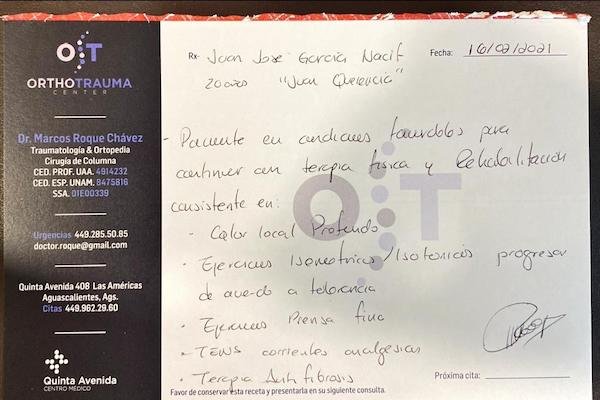 OT
ORTHOTRAUMA
CENTER
Dr. Marcos Roque Chávez
Traumatología & Ortopedia
Cirugía de Columna
CED. PROF. UAA. 4914232
CED. ESP. UNAM. 8475816
SSA. 01E00339
Urgencias 449.285.50.85
doctor.roque@gmail.com
Quinta Avenida 408 Las Américas
Aguascalientes, Ags.
Citas 449.962.29.60
Quinta Avenida
CENTRO MÉDICO
Rx- Juan Jose García Nacif Fecha: 16/02/2021
20 años "Juan Querencia"
- Paciente en condiciones favorables para
continuar con terapia física y Rehabilitación
consistente en:
OT
- Calor local Profundo
- Ejercicios Isometricos/Isotonicos progresar
de acuerdo a tolerancia
- Ejercicios Prensa fina
- TENS corrientes analgesicas
- Terapia Anti fibrosis
Próxima cita:
Favor de conservar esta receta y presentarla en su siguiente consulta.